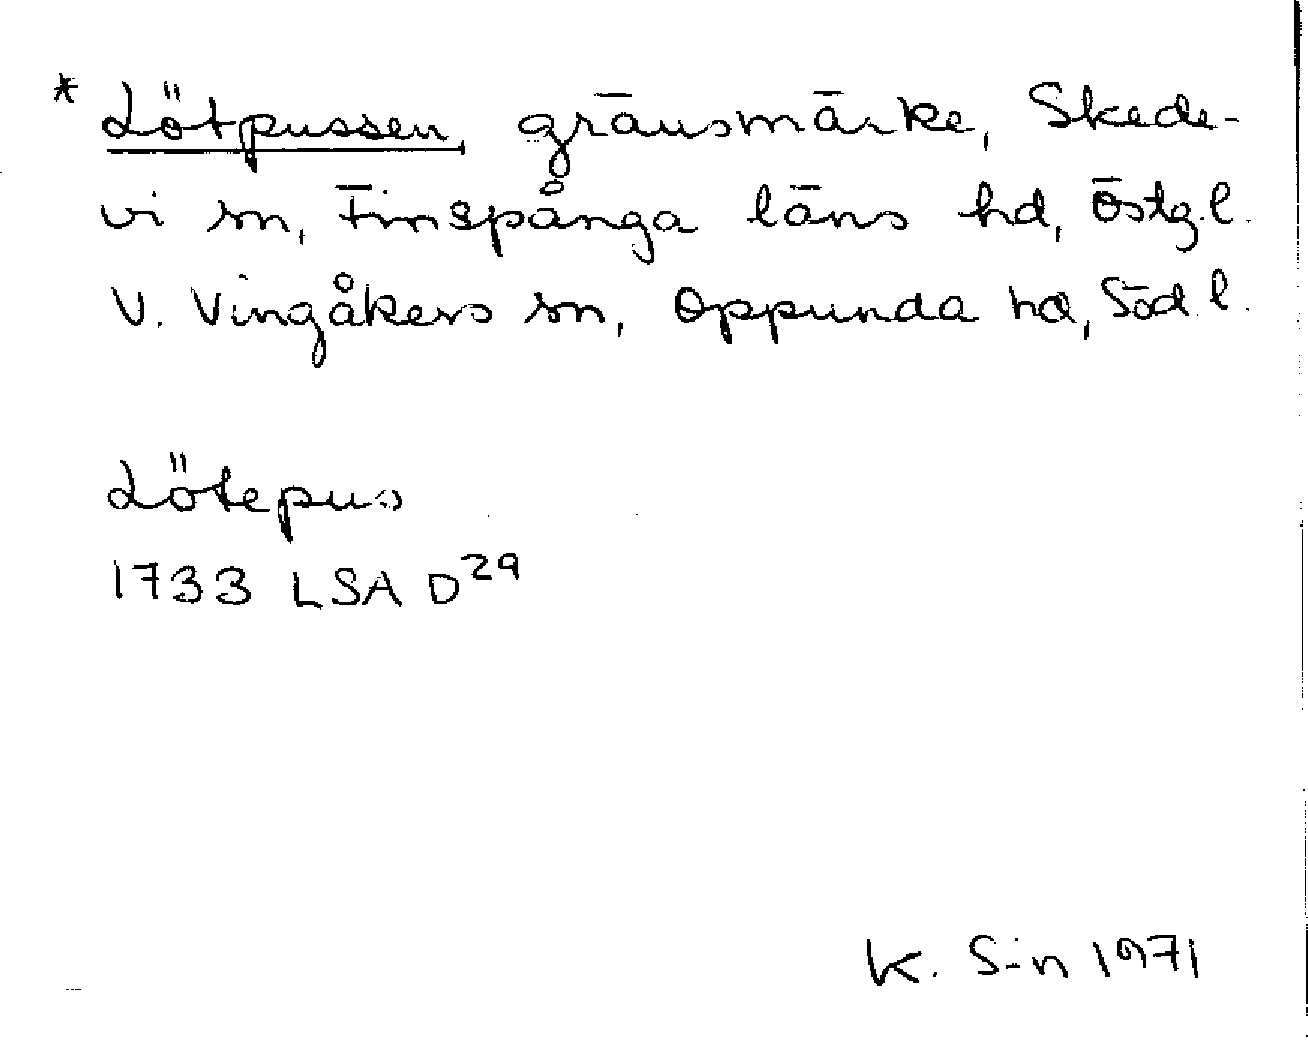 * Lötpussen, gränsmärke, Skede-
vi sn, Finspånga läns hd, Östg.l.
V. Vingåkers sn, Oppunda hd, Söd.l.
Lötepus
1733 LSA D²⁹
K. S-n 1971